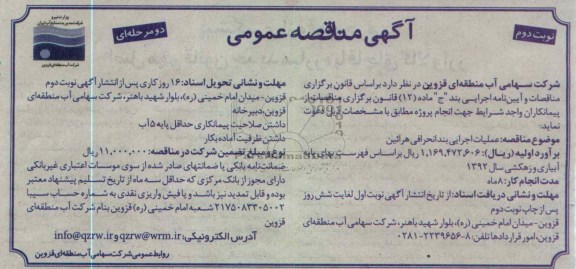 نوبت دوم
آگهی مناقصه عمومی
دو مرحله‌ای
وزارت نیرو
شرکت آب منطقه‌ای قزوین
شرکت سهامی آب منطقه‌ای قزوین در نظر دارد براساس قانون برگزاری
مناقصات و آیین‌نامه اجرایی بند "ج" ماده (۱۲) قانون برگزاری مناقصات از
پیمانکاران واجد شرایط جهت انجام پروژه مطابق با مشخصات ذیل دعوت
نماید:
موضوع مناقصه: عملیات اجرایی بند انحرافی هرانین
برآورد اولیه (ریال): ۱,۱۶۹,۴۷۲,۶۰۶ ریال براساس فهرست بهای پایه
آبیاری و زهکشی سال ۱۳۹۲
مدت انجام کار: ۸ ماه
مهلت و نشانی دریافت اسناد: از تاریخ انتشار آگهی نوبت اول لغایت شش روز
پس از چاپ نوبت دوم
قزوین- میدان امام خمینی (ره)، بلوار شهید باهنر، شرکت سهامی آب منطقه‌ای
قزوین، امور قراردادها تلفن: ۸-۲۲۳۹۶۵۶-۰۲۸۱
مهلت و نشانی تحویل اسناد: ۱۶ روز کاری پس از انتشار آگهی نوبت دوم
قزوین- میدان امام خمینی (ره)، بلوار شهید باهنر، شرکت سهامی آب منطقه‌ای
قزوین، دبیرخانه
داشتن صلاحیت پیمانکاری حداقل پایه ۵ آب
داشتن ظرفیت آماده بکار
نوع و مبلغ تضمین شرکت در مناقصه: ۱۱,۰۰۰,۰۰۰ ریال
ضمانت‌نامه بانکی یا ضمانتهای صادر شده از سوی موسسات اعتباری غیربانکی
دارای مجوز از بانک مرکزی که حداقل سه ماه از تاریخ تسلیم پیشنهاد معتبر
بوده و قابل تمدید نیز باشد و یا فیش واریزی نقدی به شماره حساب سیبا
۲۱۷۵۰۸۳۳۰۵۰۰۲ شعبه امام خمینی (ره) قزوین بنام شرکت آب منطقه‌ای
قزوین
آدرس الکترونیکی: qzrw@wrm.ir و info@qzrw.ir
روابط عمومی شرکت سهامی آب منطقه‌ای قزوین